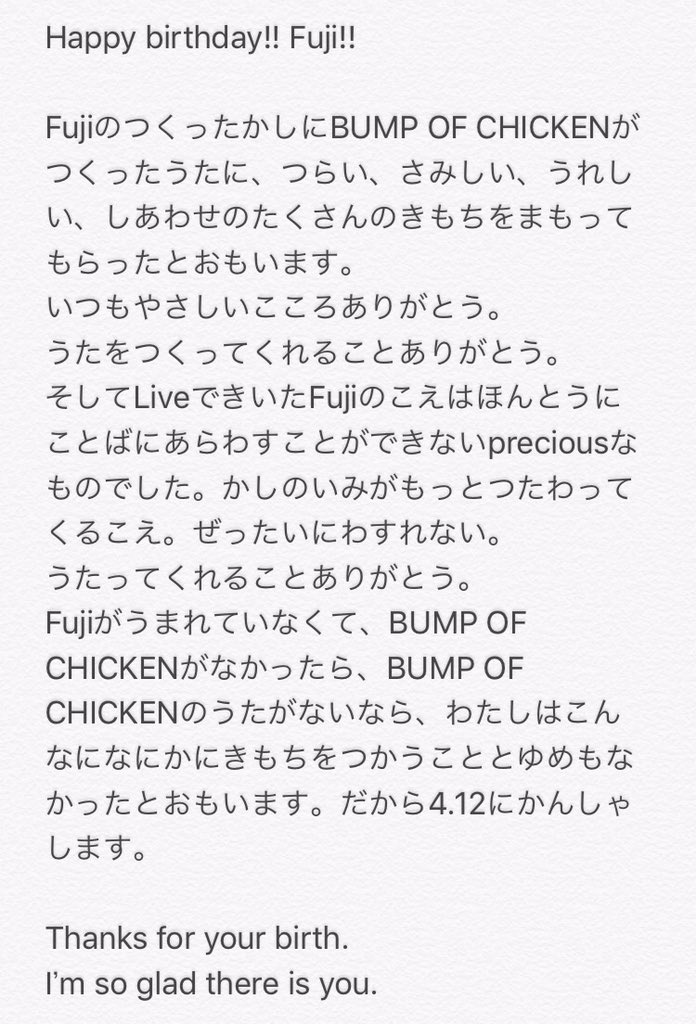 Happy birthday!! Fuji!!
FujiのつくったかしにBUMP OF CHICKENが
つくったうたに、つらい、さみしい、うれし
い、しあわせのたくさんのきもちをまもって
もらったとおもいます。
いつもやさしいこころありがとう。
うたをつくってくれることありがとう。
そしてLiveできいたFujiのこえはほんとうに
ことばにあらわすことができないpreciousな
ものでした。かしのいみがもっとつたわって
くるこえ。ぜったいにわすれない。
うたってくれることありがとう。
Fujiがうまれていなくて、BUMP OF
CHICKENがなかったら、BUMP OF
CHICKENのうたがないなら、わたしはこん
なになにかにきもちをつかうこととゆめもな
かったとおもいます。だから4.12にかんしゃ
します。
Thanks for your birth.
I'm so glad there is you.